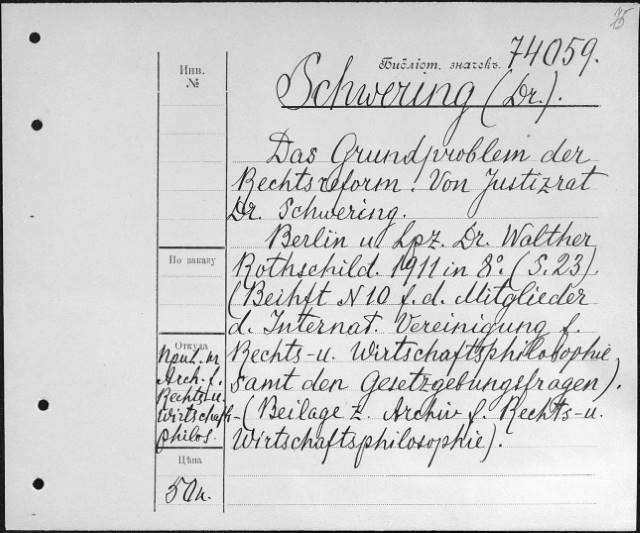 75
Библіот. значекъ. 74059.
Инв.
№
Schwering (Dr.).
Das Grundproblem der
Rechtsreform. Von Justizrat
Dr. Schwering.
Berlin u. Lpz. Dr. Walther
По заказу
Rothschild. 1911 in 8°. (S. 23).
(Beihft N 10 f. d. Mitglieder
d. Internat. Vereinigung f.
Откуда
Rechts- u. Wirtschaftsphilosophie
samt den Gesetzgebungsfragen).
(Beilage z. Archiv f. Rechts- u.
Wirtschaftsphilosophie).
Arch. f.
Rechts- u.
Wirtschafts-
philos.
Цѣна
50